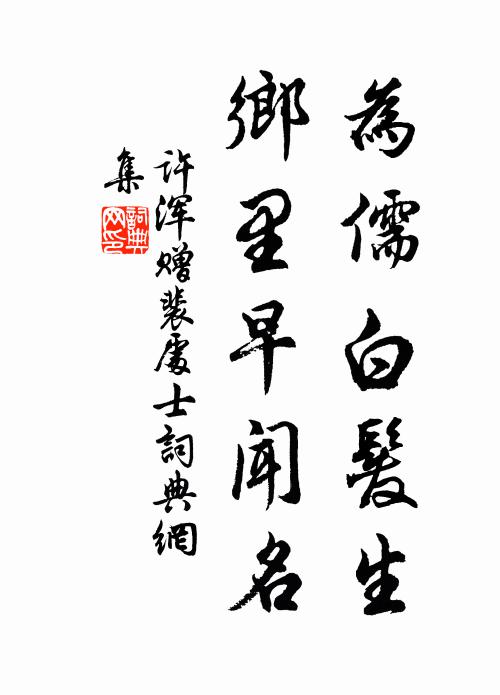 為儒白髮生
鄉里早聞名
許渾贈裴處士詞典網
集
詞典网印